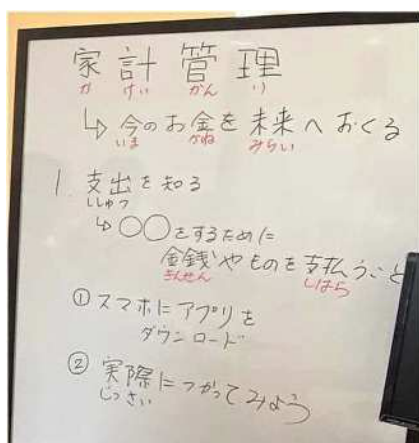 家計管理
か けい かん り
↳ 今のお金を未来へおくる
いま かね みらい
1. 支出を知る
ししゅつ
↳ ○○をするために
金銭やものを支払うこと
きんせん しはら
① スマホにアプリを
ダウンロード
② 実際につかってみよう
じっさい